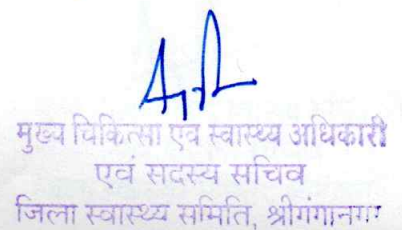 मुख्य चिकित्सा एवं स्वास्थ्य अधिकारी
एवं सदस्य सचिव
जिला स्वास्थ्य समिति, श्रीगंगानगर